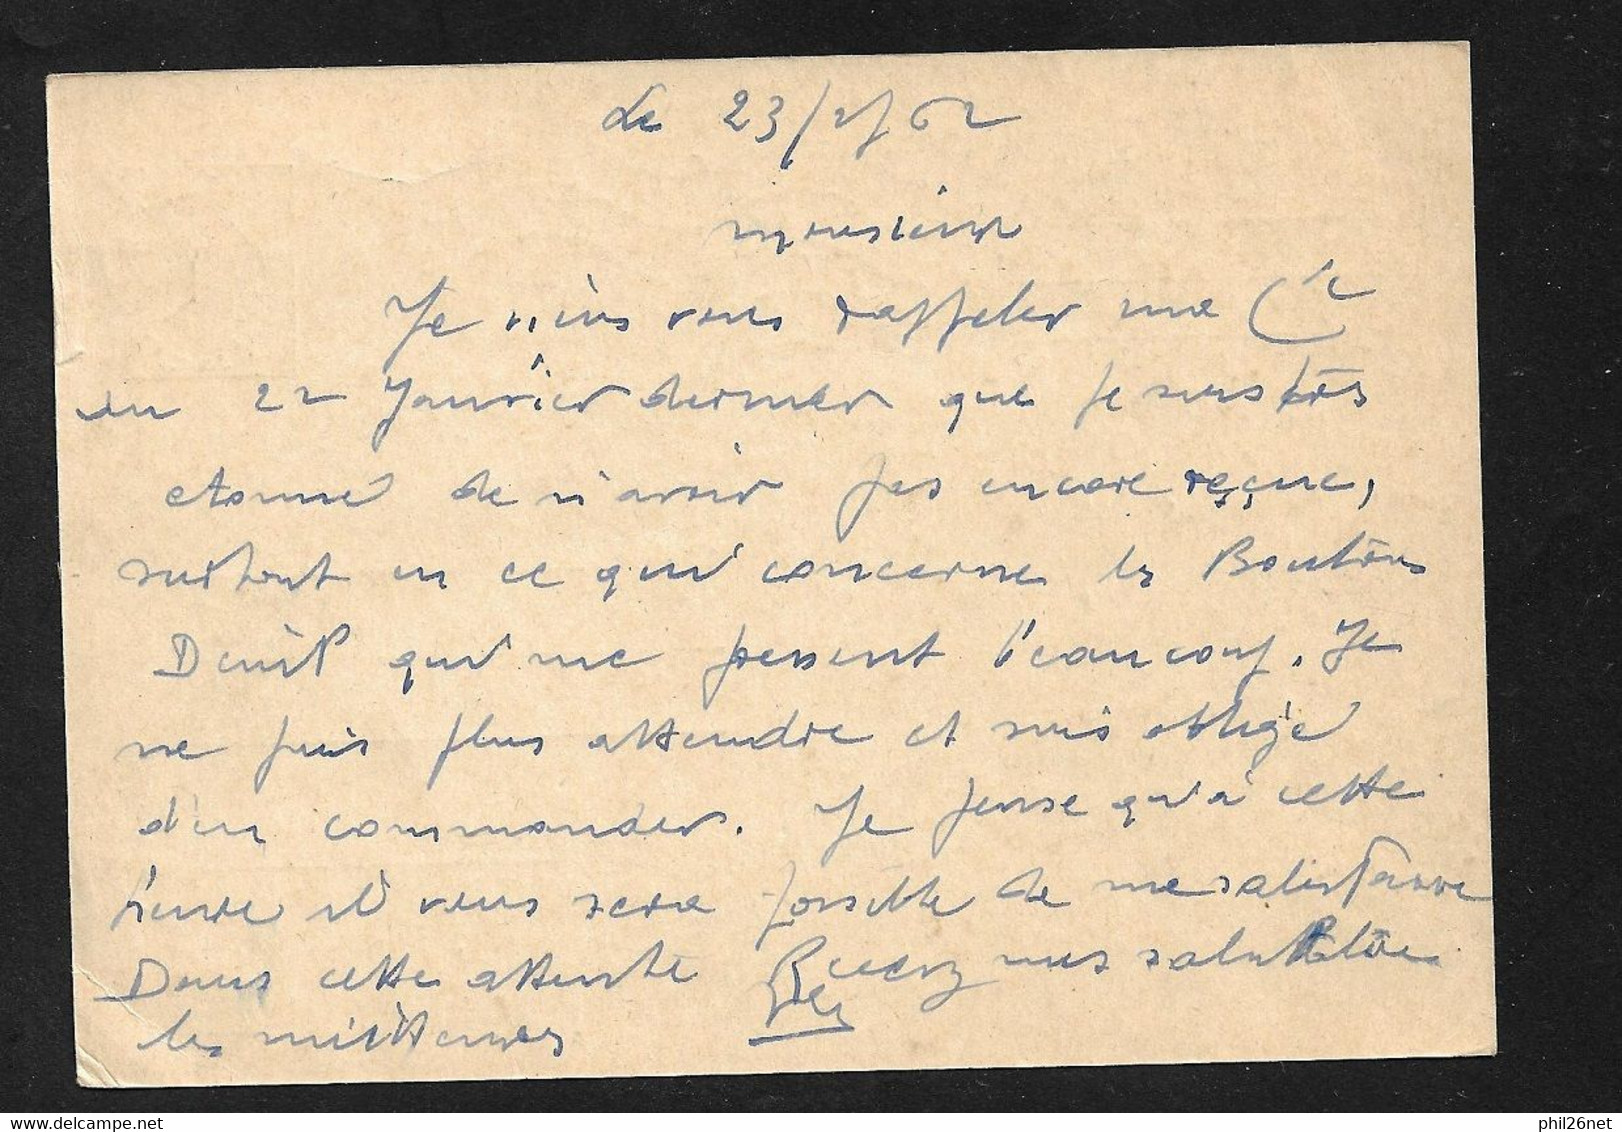 Le 23/2/62
Monsieur
Je viens vous rappeler ma Cde
du 22 Janvier dernier que je suis très
etonné de n'avoir pas encore reçue,
surtout en ce qui concerne les Boutons
Deuil qui me pressent beaucoup. Je
ne puis plus attendre et suis obligé
d'en commander. Je pense qu'à cette
heure il vous sera possible de me satisfaire
Dans cette attente Recevez mes salutations
les meilleures
phil26net - delcampe.net